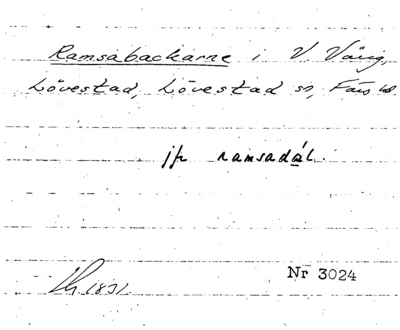 Ramsabackarne i V. Väng,
Lövestad, Lövestad sn, Färs hd
jfr ramsadál.
1831.
Nr 3024